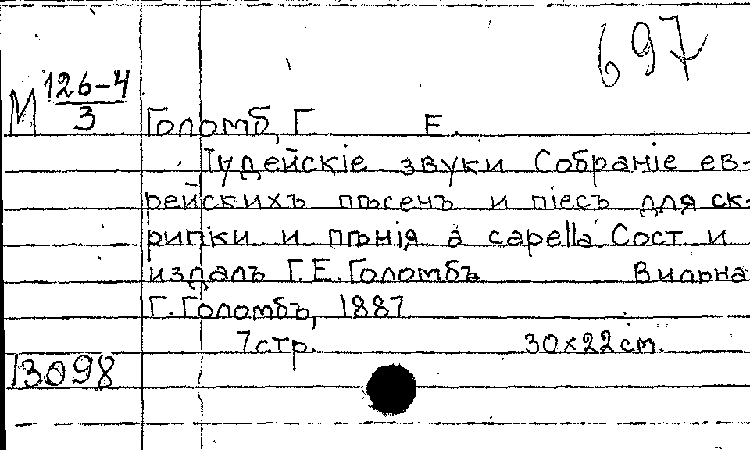 697
М 126-4/3
Голомб, Г. Е.
Іудейскіе звуки Собраніе ев-
рейскихъ пѣсенъ и піесъ для ск-
рипки и пѣнія à capella Сост. и
издалъ Г. Е. Голомбъ Вильна
Г. Голомбъ, 1887
7 стр. 30x22 см.
13098